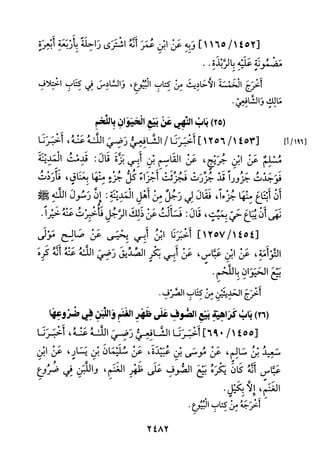 [١١٦٥/١٤٥٢] وَبِهِ عَنْ ابْنِ عُمَرَ أَنَّهُ اشْتَرَى رَاحِلَةً بِأَرْبَعَةِ أَبْعِرَةٍ
مَضْمُونَةٍ عَلَيْهِ بِالرَّبَذَةِ. .
أَخْرَجَ الْخَمْسَةَ الأَحَادِيثَ مِنْ كِتَابِ الْبُيُوعِ، وَالسَّادِسَ فِي كِتَابِ اخْتِلافِ
مَالِكٍ وَالشَّافِعِيِّ.
(٢٥) بَابُ النَّهْيِ عَنْ بَيْعِ الْحَيَوَانِ بِاللَّحْمِ
[١٢٥٦/١٤٥٣] أَخْبَرَنَا/ الشَّافِعِيُّ رَضِيَ اللَّهُ عَنْهُ، أَخْبَرَنَا [١٩٢/أ]
مُسْلِمٌ عَنْ ابْنِ جُرَيْجٍ، عَنْ الْقَاسِمِ بْنِ أَبِي بَزَّةَ قَالَ: قَدِمْتُ الْمَدِينَةَ
فَوَجَدْتُ جَزُوراً قَدْ جُزِرَتْ فَجُزِّئَتْ أَجْزَاءً كُلُّ جُزْءٍ مِنْهَا بِعَنَاقٍ، فَأَرَدْتُ
أَنْ أَبْتَاعَ مِنْهَا جُزْءاً، فَقَالَ لِي رَجُلٌ مِنْ أَهْلِ الْمَدِينَةِ: إِنَّ رَسُولَ اللَّهِ ﷺ
نَهَى أَنْ يُبَاعَ حَيٌّ بِمَيِّتٍ، قَالَ: فَسَأَلْتُ عَنْ ذَلِكَ الرَّجُلِ فَأُخْبِرْتُ عَنْهُ خَيْراً.
[١٢٥٧/١٤٥٤] أَخْبَرَنَا ابْنُ أَبِي يَحْيَى عَنْ صَالِحٍ مَوْلَى
التَّوْأَمَةِ، عَنْ ابْنِ عَبَّاسٍ، عَنْ أَبِي بَكْرٍ الصِّدِّيقِ رَضِيَ اللَّهُ عَنْهُ أَنَّهُ كَرِهَ
بَيْعَ الْحَيَوَانِ بِاللَّحْمِ.
أَخْرَجَ الْحَدِيثَيْنِ مِنْ كِتَابِ الصَّرْفِ.
(٢٦) بَابُ كَرَاهِيَةِ بَيْعِ الصُّوفِ عَلَى ظَهْرِ الْغَنَمِ وَاللَّبَنِ فِي ضُرُوعِهَا
[٦٩٠/١٤٥٥] أَخْبَرَنَا الشَّافِعِيُّ رَضِيَ اللَّهُ عَنْهُ، أَخْبَرَنَا
سَعِيدُ بْنُ سَالِمٍ، عَنْ مُوسَى بْنِ عُبَيْدَةَ، عَنْ سُلَيْمَانَ بْنِ يَسَارٍ، عَنْ ابْنِ
عَبَّاسٍ أَنَّهُ كَانَ يَكْرَهُ بَيْعَ الصُّوفِ عَلَى ظَهْرِ الْغَنَمِ، واللَّبَنِ فِي ضُرُوعِ
الْغَنَمِ، إِلاَّ بِكَيْلٍ.
أَخْرَجَهُ مِنْ كِتَابِ الْبُيُوعِ.
٢٤٨٢